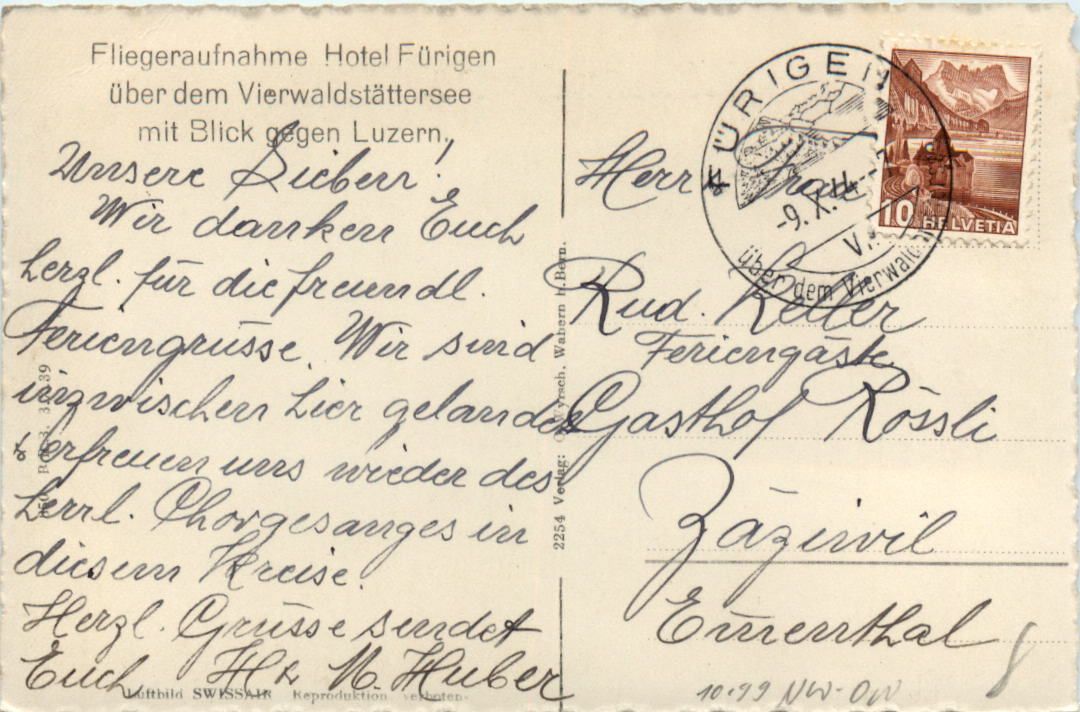 Fliegeraufnahme Hotel Fürigen
über dem Vierwaldstättersee
mit Blick gegen Luzern.
Unsere Lieben!
Wir danken Euch
herzl. für die freundl.
Feriengrüsse. Wir sind
inzwischen hier gelandet
& erfreuen uns wieder des
herrl. Chorgesanges in
diesem Kreise.
Herzl. Grüsse sendet
Euch H & M. Huber
Luftbild SWISSAIR Reproduktion verboten
2254 Verlag: Wabern b. Bern.
FÜRIGEN
-9. X.
über dem Vierwald
10 HELVETIA
Herr
Rud. Keller
Feriengäste
Gasthof Rössli
Zäziwil
Emmenthal
10.99 NW-OW